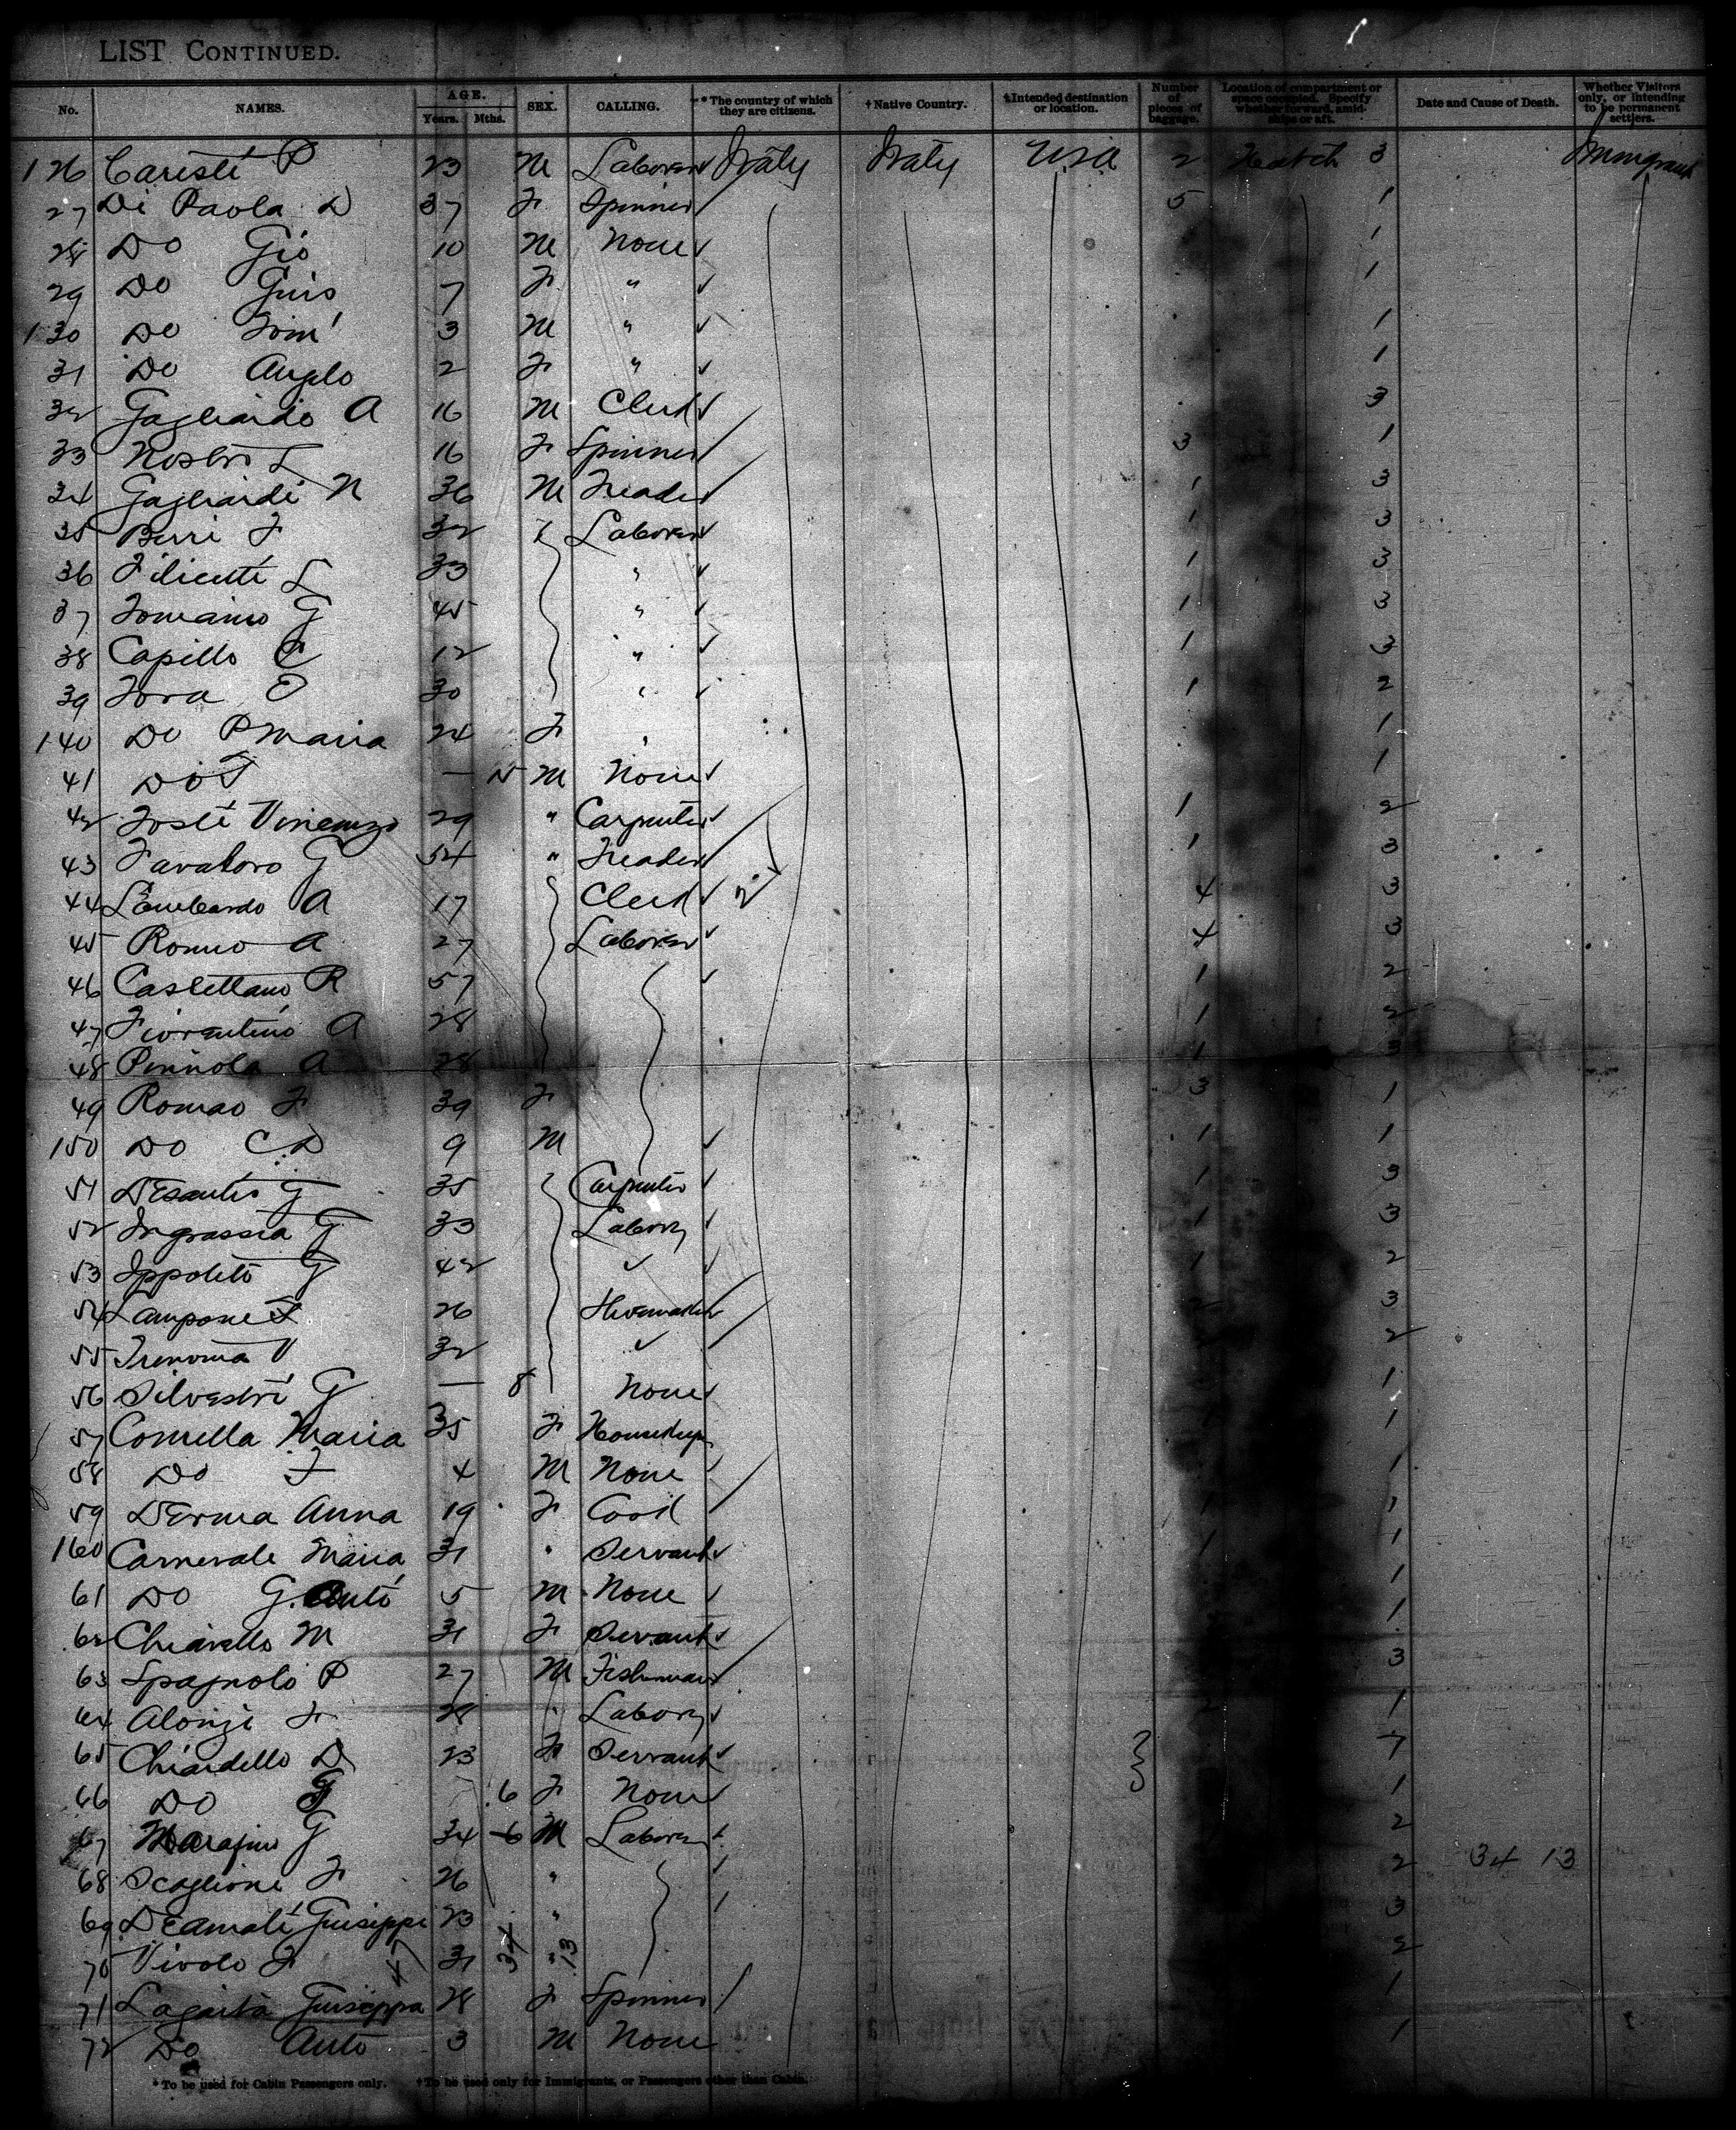 LIST CONTINUED.
No. NAMES. AGE. Years. Mths. SEX. CALLING. * The country of which they are citizens. † Native Country. ‡ Intended destination or location. Number of pieces of baggage. Location of compartment or space occupied. Specify whether forward, amidships or aft. Date and Cause of Death. Whether Visitors only, or intending to be permanent settlers.
126 Caristi P 23 M Laborer ✓ Italy Italy USA 2 Hatch 3 Immigrant
27 Di Paola D 37 F Spinner 5 1
28 Do Gio 10 M None ✓ 1
29 Do Guis 7 F " ✓ 1
130 Do 3 M " ✓ 1
31 Do Anglo 2 F " ✓ 1
32 Gagliardo A 16 M Clerk ✓ 3
33 Nostri L 16 F Spinner 3 1
34 Gagliardi N 36 M Trader 1 3
35 F 32 Laborer ✓ 1 3
36 Filicetti L 33 " ✓ 1 3
37 G 45 " ✓ 1 3
38 Capillo C 12 " ✓ 1 3
39 30 " ✓ 1 2
140 Do P Maria 24 F " 1
41 Do T — M None ✓ 1
42 Vincenzo 29 " Carpenter ✓ 1 2
43 Favaloro G 54 " Trader 1 3
44 Lombardo A 17 Clerk ✓ 4 3
45 Romeo A 27 Laborer ✓ 4 3
46 Castellano R 57 ✓ 1 2
47 Fiorentino A 28 1 2
48 Pennola A 28 1 3
49 Romao F 39 F 3 1
150 Do C.D 9 M ✓ 1 1
51 DEsantis G 35 Carpenter ✓ 1 3
52 Ingrassia G 33 Labory ✓ 1 3
53 Ippolito G 42 ✓ ✓ 1 2
54 Lampone 26 Shoemaker 2 3
55 V 32 ✓ 2
56 Silvestri G — 8 None ✓ 1
57 Comella Maria 35 F Housekeep 1 1
58 Do F 4 M None ✓ 1
59 DErma Anna 19 F Cook 1 1
160 Carnevale Maria 31 " Servant ✓ 1 1
61 Do G. Anto 5 M None ✓ 1
62 Chiarello M 31 F Servant ✓ 1
63 Spagnolo P 27 M Fishman 3
64 Alonzi F 28 " Labory ✓ 2 1
65 Chiardello D 23 F Servant ✓ 1
66 Do G 6 F None ✓ 1
67 G 34 6 M Laborer 2
68 Scaglione F 26 " ✓ 2 34 13
69 DEamali Guiseppe 23 " 3
70 Vivolo F 31 " 2
47 34 13
71 Guiseppa 28 F Spinner 1
72 Do Anto 3 M None 1
* To be used for Cabin Passengers only. † To be used only for Immigrants, or Passengers other than Cabin.